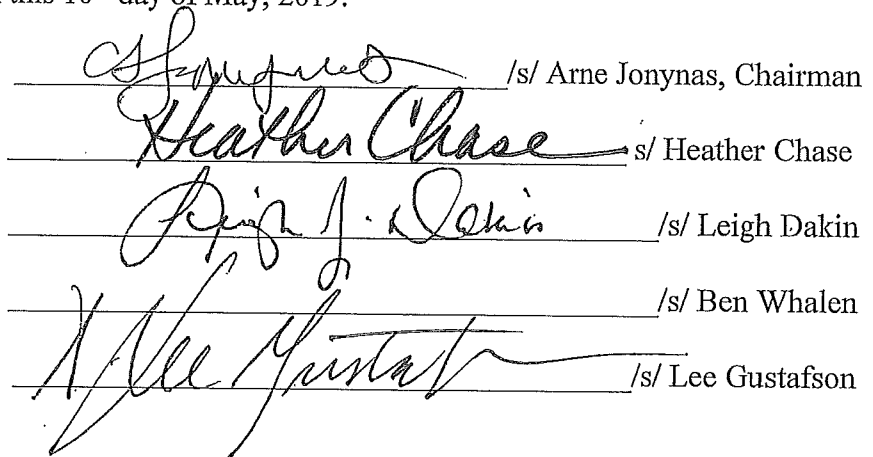 day of May, 2019.
/s/ Arne Jonynas, Chairman
Heather Chase s/ Heather Chase
Leigh J. Dakin /s/ Leigh Dakin
/s/ Ben Whalen
Lee Gustafson /s/ Lee Gustafson